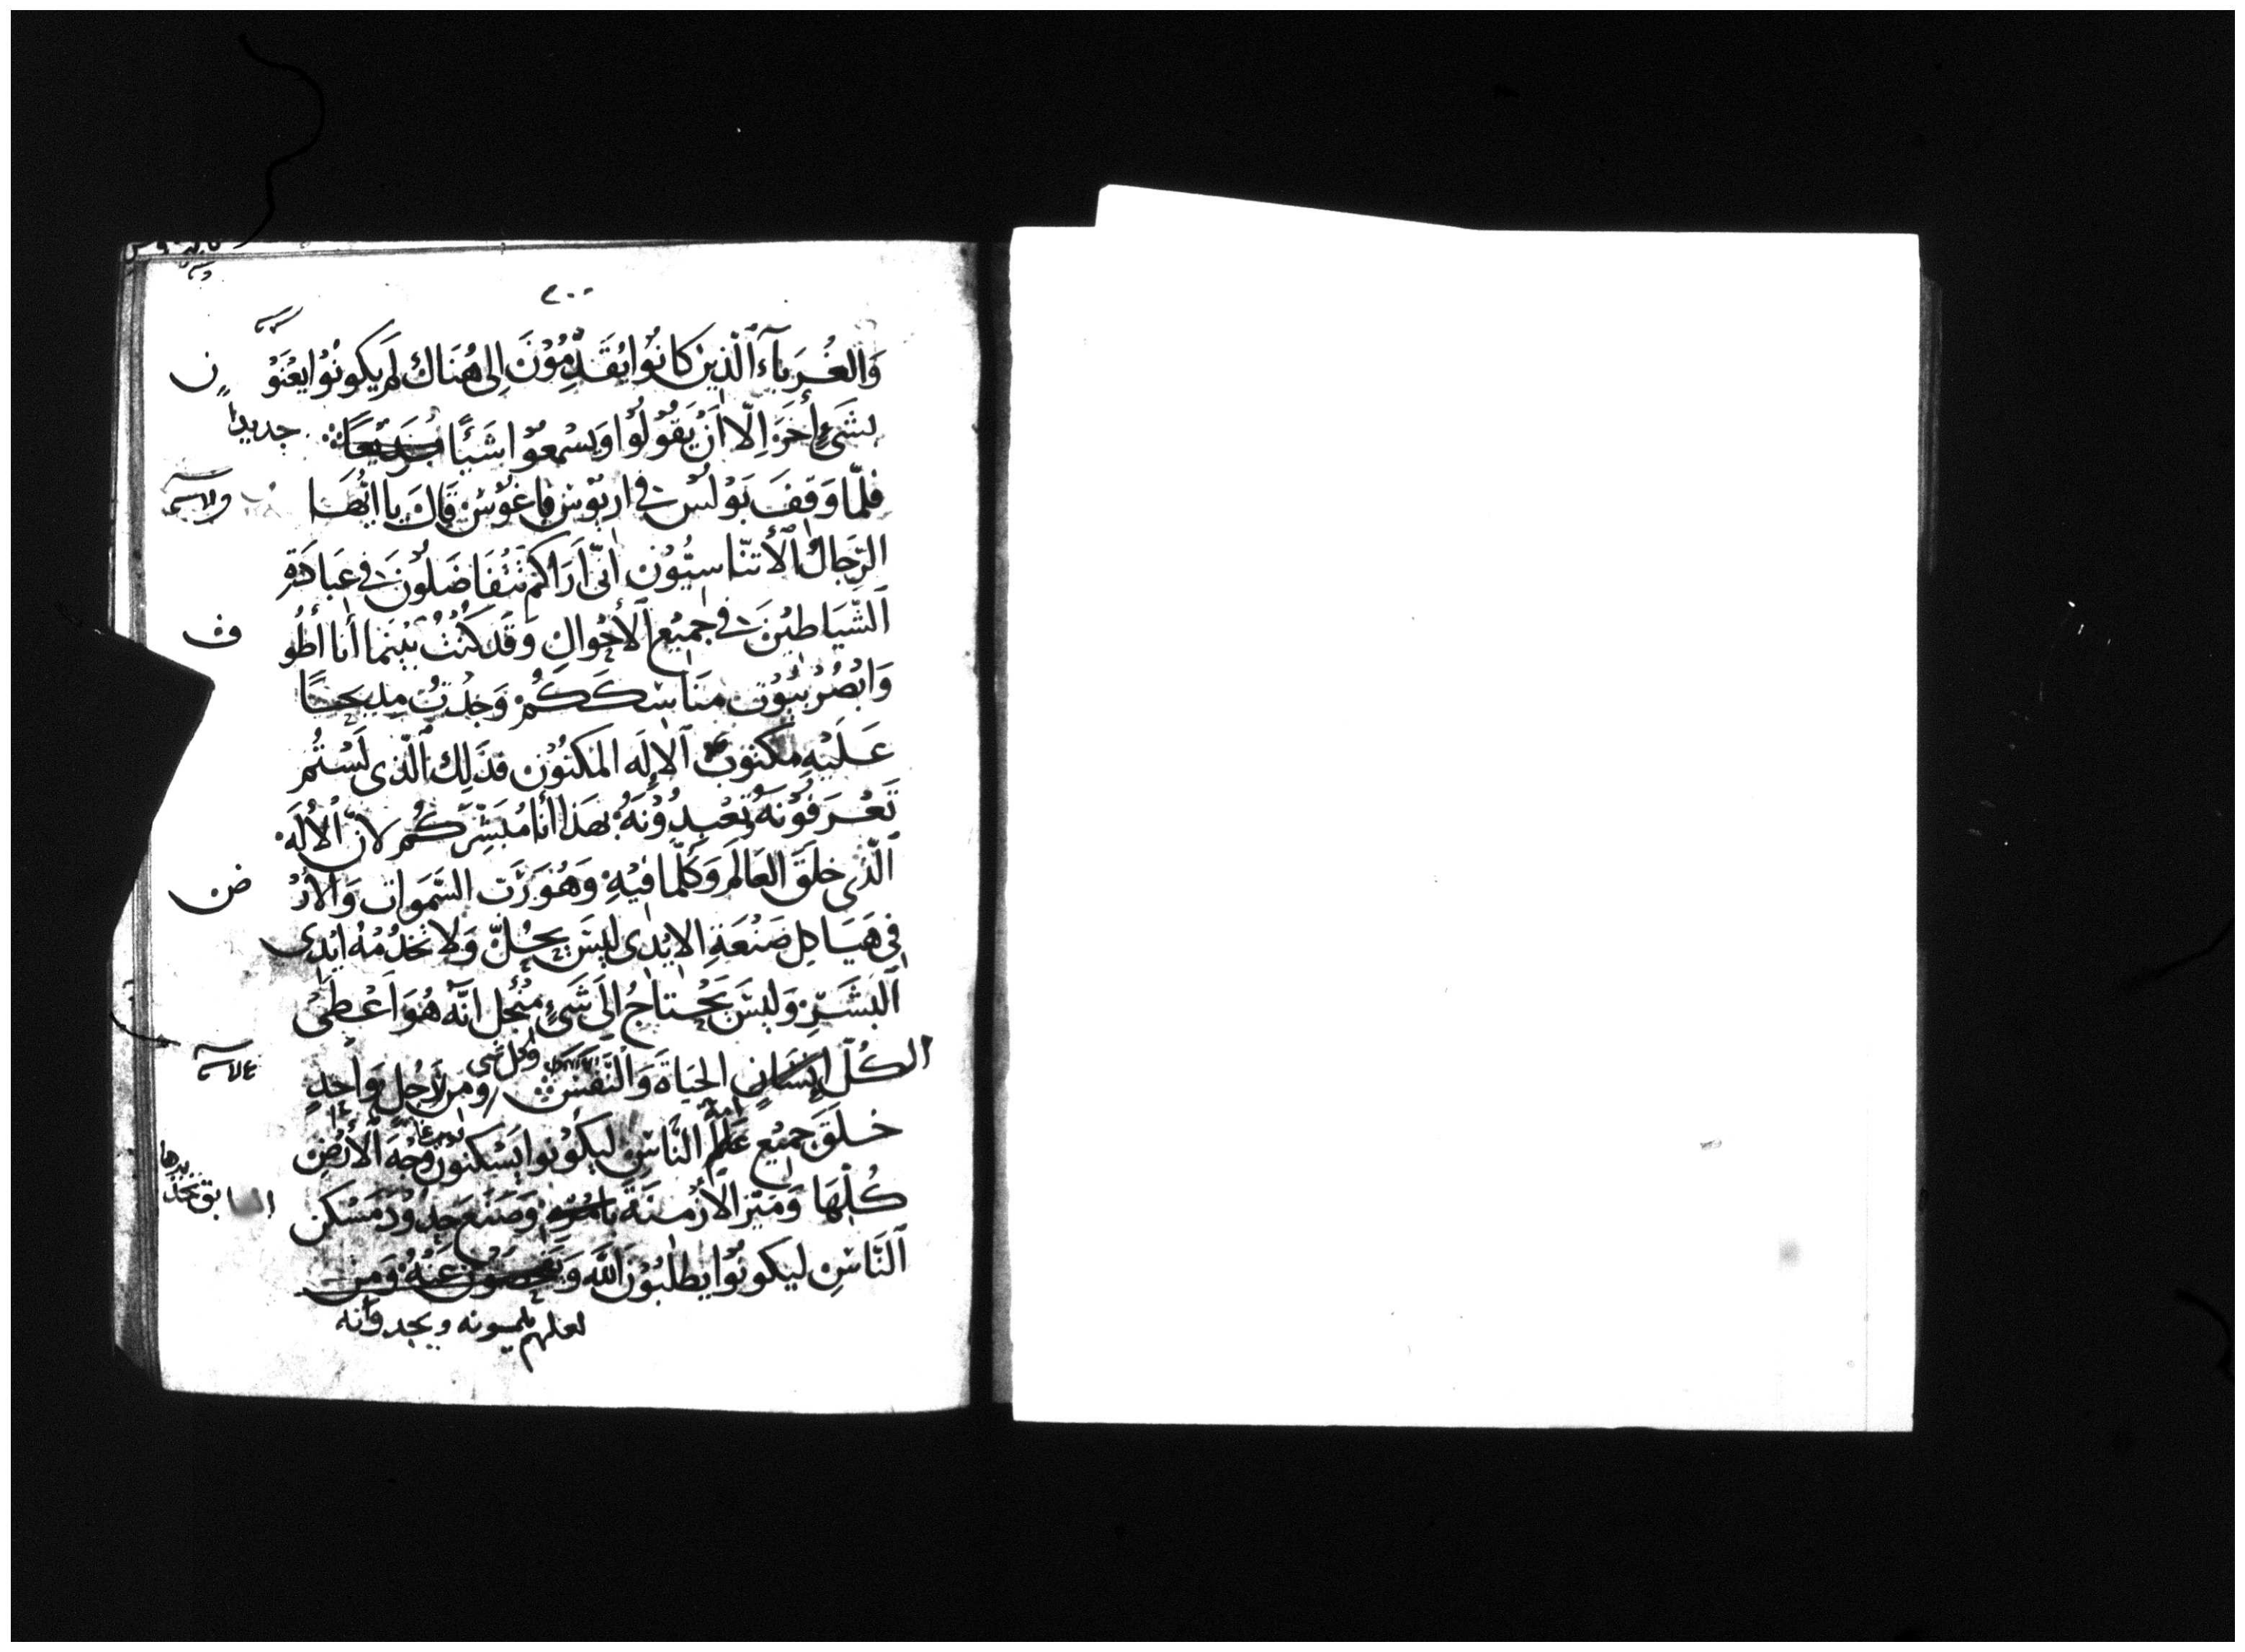 وَالغُرَبآءَ ٱلّذِينَ كانُوا يُقَدِّمُوْنَ اِلى هُنَاكَ لَم يَكونُوْا يُعْنَوْ ن
بِشَيْءٍ أخَرَ اِلّا أنْ يَقُوْلُوا وَيَسْمعُوْا شَيْئًا جديدا
فَلمّا وَقَفَ بَوْلسُ في اريُوْسَ فاغُوْسْ قَالَ يا ايُّهَا
الرِّجَالُ الأتنّاسيُّوْن اِنّى اَرَاكم تَتَفَاضَلُوْنَ في عبَادَةِ
ٱلشّيَاطِيْنَ في جميْع الأحْوالِ وَقَدكنْتُ بيْنما أنا أطُو ف
وَابْصُرُ بيُوْت مَنَاسِكَكُمْ وَجدْتُ مذبحًا
عَلَيْهِ مكتوبٌ ٱلاِلَه المَكنُوْن فذَلِك ٱلّذى لَسْتُم
تَعْرفُوْنَهُ وتعْبدُوْنَهُ بهَذا أنا مُبَشِّركُم لانّ الاِلَه
الّذى خلَقَ العَالَم وَكُلّما فيْهِ وَهُوَ رَبّ السَّموات وَالأرْ ض
في هَيَا كِل صَنْعَةِ الايْدى ليْسَ يحُلّ وَلا تخدُمُهُ ايْدى
ٱلبَشَرِ وَليْسَ يَحْتاجُ اِلَى شَىْءٍ مِنْ اجل انّه هُوَ اَعْطىْ
الكُلّ انسَانٍ الحيَاةَ وَالنَّفَسَ وكل شى ومن رَجُلٍ وَاحدٍ
خلَقَ جميْع عَالَم النّاسِ ليَكُوْنوا يَسْكنون وَجْهَ الأرْضِ
كُلّهَا وَميّز الأزْمنَةَ بامْرِهِ وَصَنَع حدُوْد مَسْكن
ٱلنّاسِ ليكونُوْا يطلبُوْنَ اللّهَ وَيَفحصُوْنَ عَنْهُ وَمِن
لعلهم يلمسونه ويجدونه